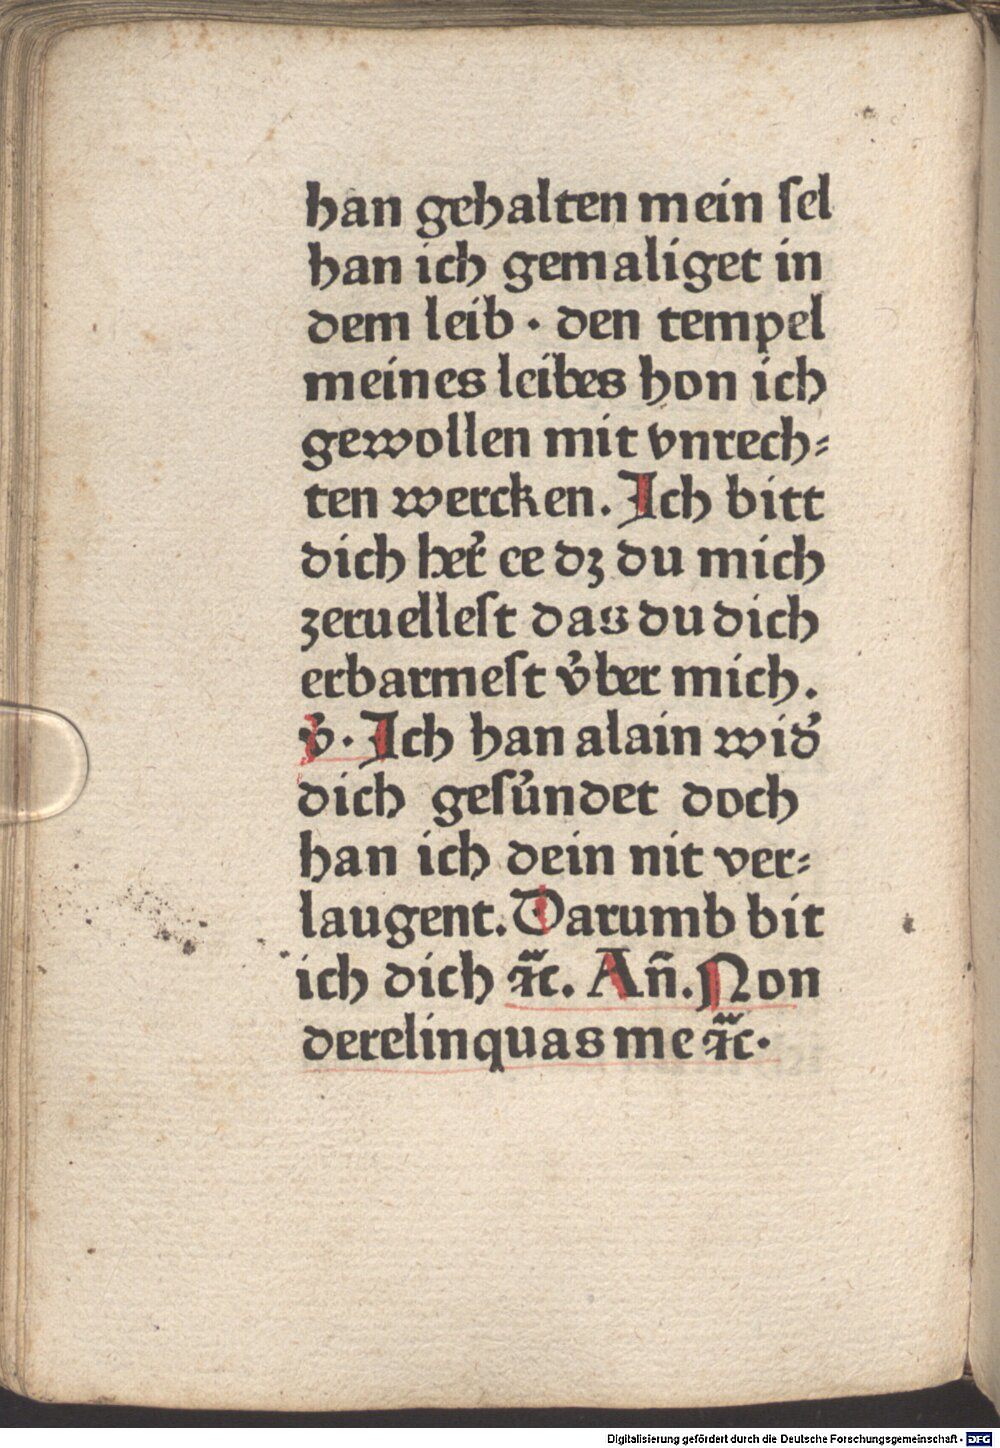 han gehalten mein ſel
han ich gemaliget in
dem leib · den tempel
meines leibes hon ich
gewollen mit vnrech⸗
ten wercken. Ich bitt
dich her̃ ce dz du mich
zeruelleſt das du dich
erbarmeſt v̊ber mich.
v̊. Ich han alain wid̓
dich geſu̓ndet doch
han ich dein nit ver⸗
laugent. Darumb bit
ich dich ꝛc̃. An̄. Non
derelinquas me ꝛc̃.
Digitalisierung gefördert durch die Deutsche Forschungsgemeinschaft - DFG